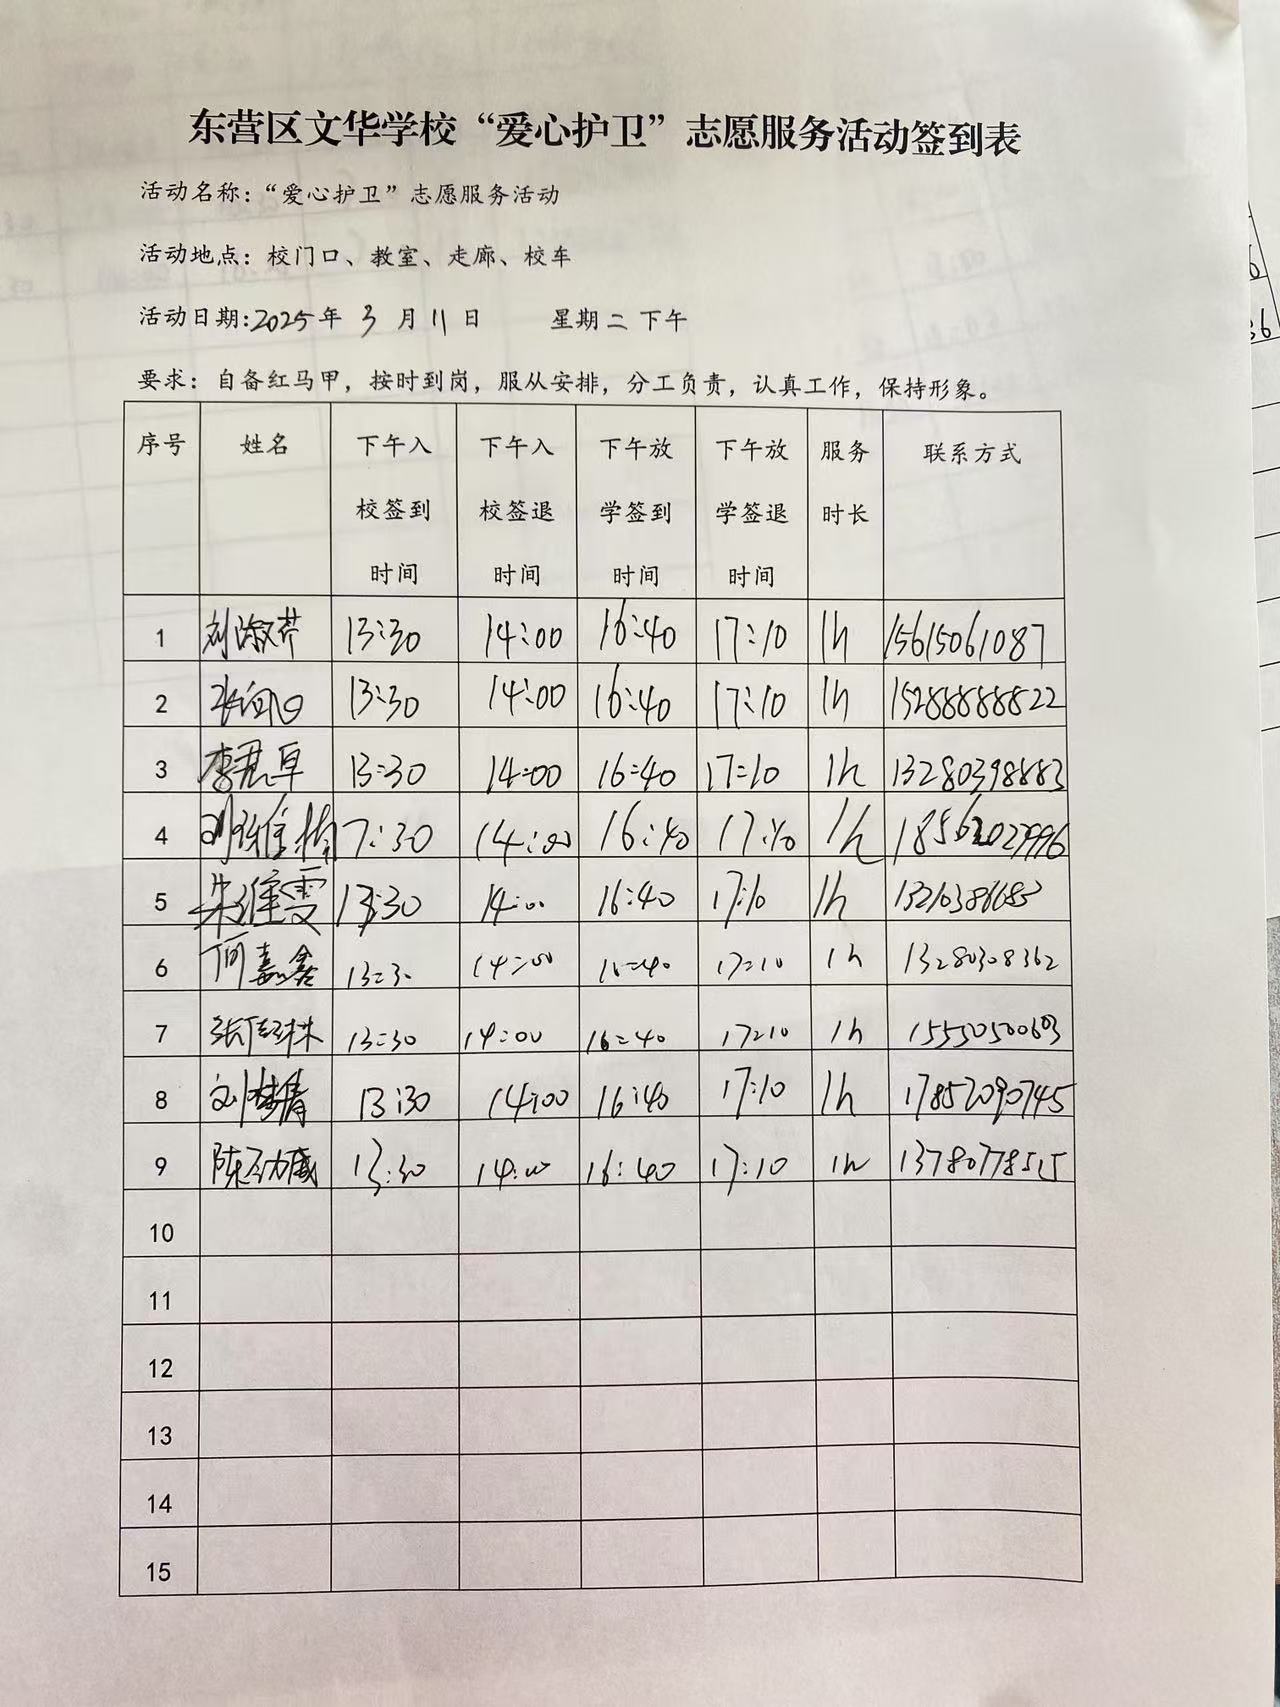 东营区文华学校“爱心护卫”志愿服务活动签到表
活动名称:“爱心护卫”志愿服务活动
活动地点:校门口、教室、走廊、校车
活动日期:2025年 3 月 11 日 星期二下午
要求:自备红马甲,按时到岗,服从安排,分工负责,认真工作,保持形象。
序号 姓名 下午入校签到时间 下午入校签退时间 下午放学签到时间 下午放学签退时间 服务时长 联系方式
1 刘淑芹 13:30 14:00 16:40 17:10 1h 15615061087
2 13:30 14:00 16:40 17:10 1h 15288888822
3 李君卓 13:30 14:00 16:40 17:10 1h 13280398883
4 7:30 14:00 16:40 17:10 1h 18562027996
5 朱维雯 13:30 14:00 16:40 17:10 1h
6 何嘉鑫 13:30 14:00 16:40 17:10 1h 13280308362
7 13:30 14:00 16:40 17:10 1h
8 13:30 14:00 16:40 17:10 1h 17852090745
9 13:30 14:00 16:40 17:10 1h 13780778515
10
11
12
13
14
15